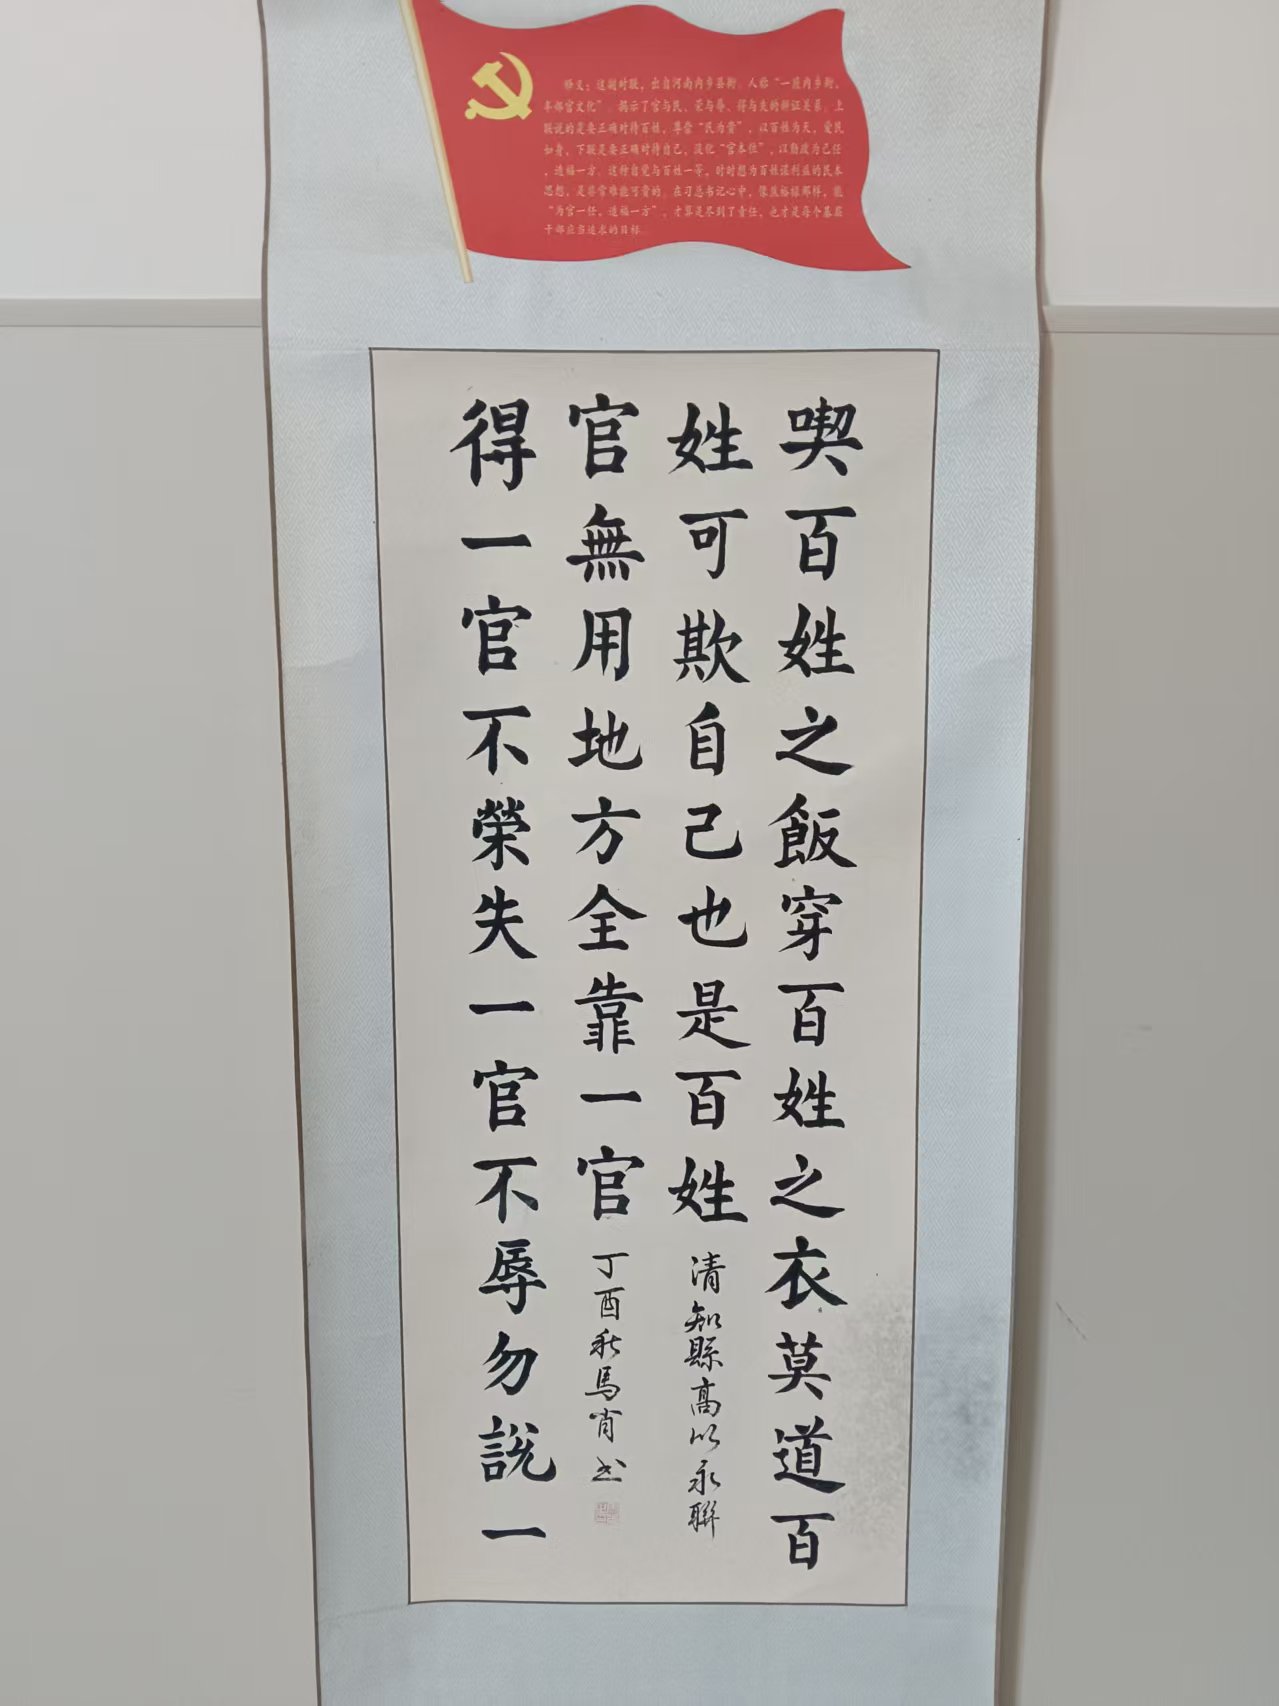 释义:这副对联,出自河南内乡县衙。人称“一座内乡衙,
半部官文化”。揭示了官与民、荣与辱、得与失的辩证关系。上
联说的是要正确对待百姓,尊崇“民为贵”,以百姓为天,爱民
如身。下联是要正确对待自己,淡化“官本位”,以勤政为己任
,造福一方。这种自觉与百姓一等,时时想为百姓谋利益的民本
思想,是非常难能可贵的。在习总书记心中,像焦裕禄那样,能
“为官一任,造福一方”,才算是尽到了责任,也才是每个基层
干部应当追求的目标。
喫百姓之飯穿百姓之衣莫道百
姓可欺自己也是百姓
清知縣高以永聯
得一官不榮失一官不辱勿說一
官無用地方全靠一官
丁酉秋馬肖书